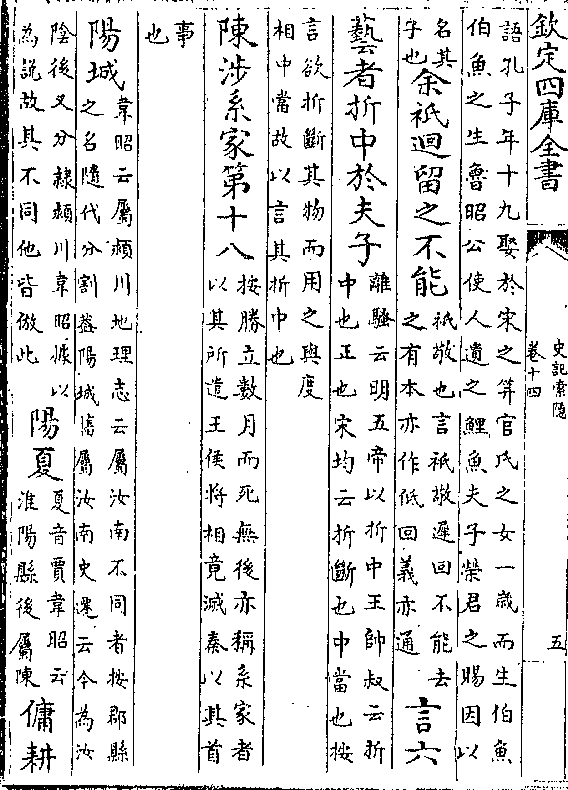 欽定四庫全書
史記索隱
卷十四
五
語孔子年十九娶於宋之笄官氏之女一歲而生伯魚
伯魚之生魯昭公使人遺之鯉魚夫子榮君之賜因以
名其
子也
余祇迴留之不能
祇敬也言祇敬遲回不能去
之有本亦作低回義亦通
言六
藝者折中於夫子
離騷云明五帝以折中王帥叔云折
中也正也宋均云折斷也中當也按
言欲折斷其物而用之與度
相中當故以言其折中也
陳涉系家第十八
按勝立數月而死無後亦稱系家者
以其所遣王侯將相竟滅秦以其首
事
也
陽城
韋昭云屬潁川地理志云屬汝南不同者按郡縣
之名隨代分割葢陽城舊屬汝南史遷云今為汝
陰後又分隸潁川韋昭據以
為說故其不同他皆倣此
陽夏
夏音賈韋昭云
淮陽縣後屬陳
傭耕